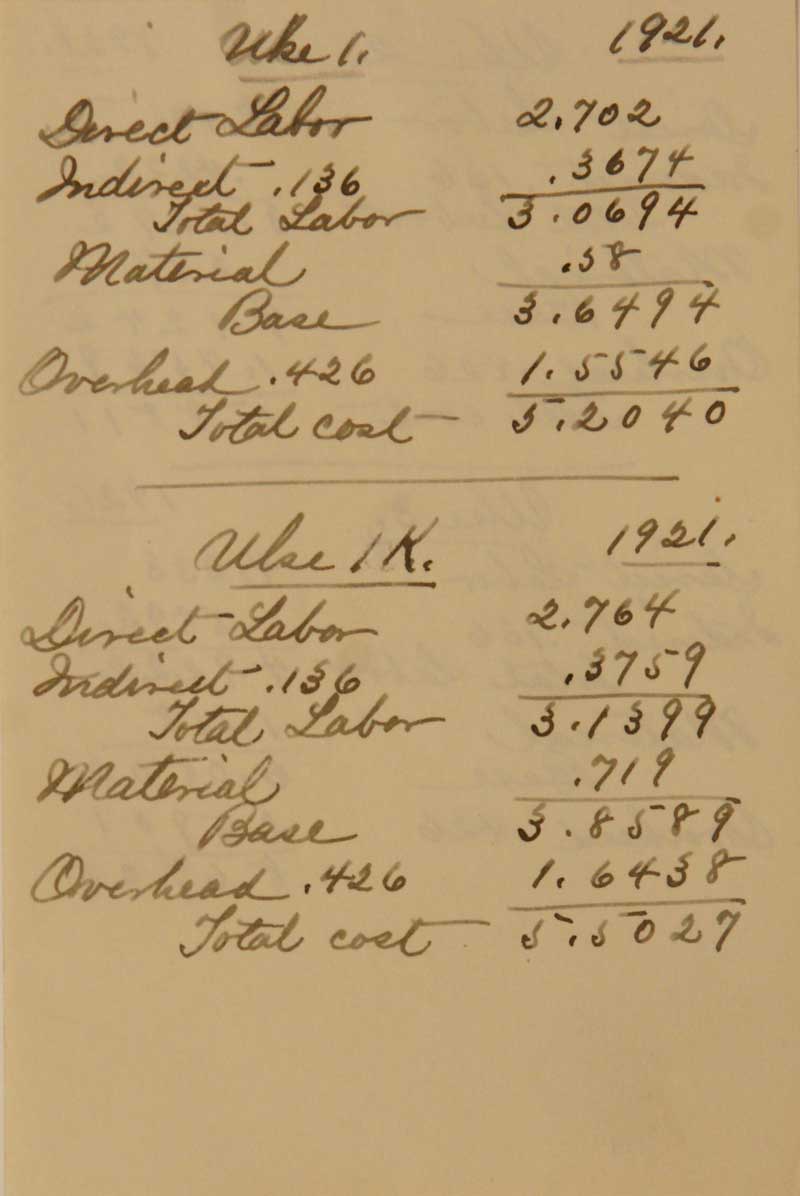 Uke 1. 1921.
Direct Labor 2.702
Indirect .136 .3674
Total Labor 3.0694
Material .58
Base 3.6494
Overhead .426 1.5546
Total cost 5.2040
Uke 1K. 1921.
Direct Labor 2.764
Indirect .136 .3759
Total Labor 3.1399
Material .719
Base 3.8589
Overhead .426 1.6438
Total cost 5.5027